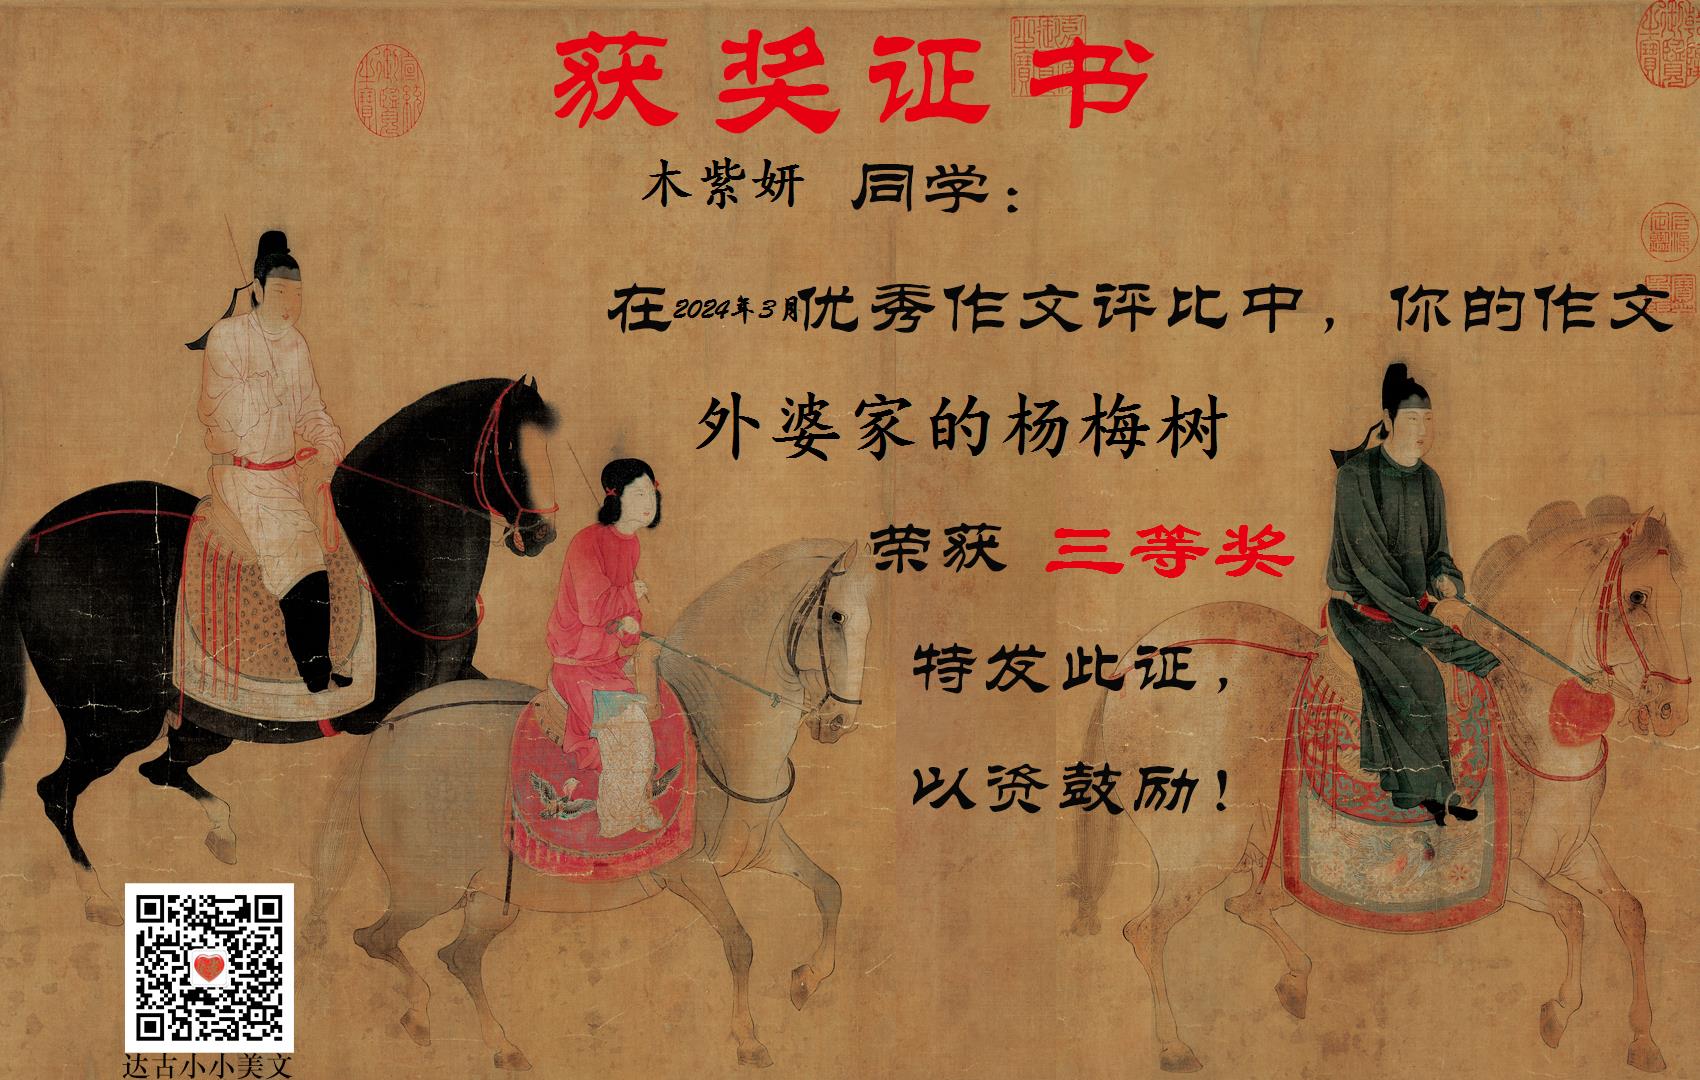 获奖证书
木紫妍 同学：
在2024年3月优秀作文评比中，你的作文
外婆家的杨梅树
荣获 三等奖
特发此证，
以资鼓励！
达古小小美文